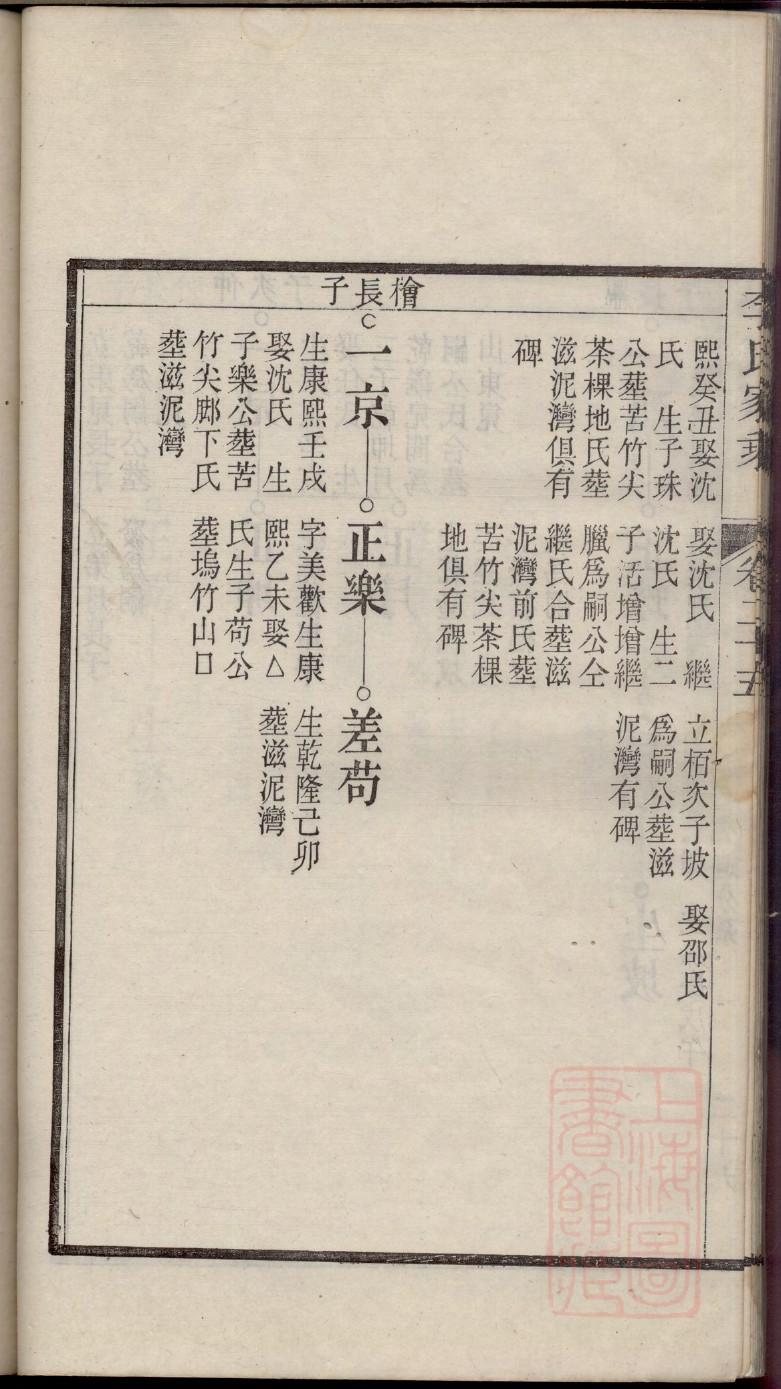 李氏家乘
卷二十五
熙癸丑娶沈
氏　生子珠
公塟苦竹尖
茶棵地氏塟
滋泥灣俱有
碑
娶沈氏　繼
沈氏　生二
子活增增繼
臘爲嗣公仝
繼氏合塟滋
泥灣前氏塟
苦竹尖茶棵
地俱有碑
立栢次子坡
爲嗣公塟滋
泥灣有碑
娶邵氏
檜長子
一京
生康熙壬戌
娶沈氏　生
子樂公塟苦
竹尖郮下氏
塟滋泥灣
正樂
字美歡生康
熙乙未娶△
氏生子苟公
塟塢竹山口
差苟
生乾隆己卯
塟滋泥灣
上海圖
書館藏